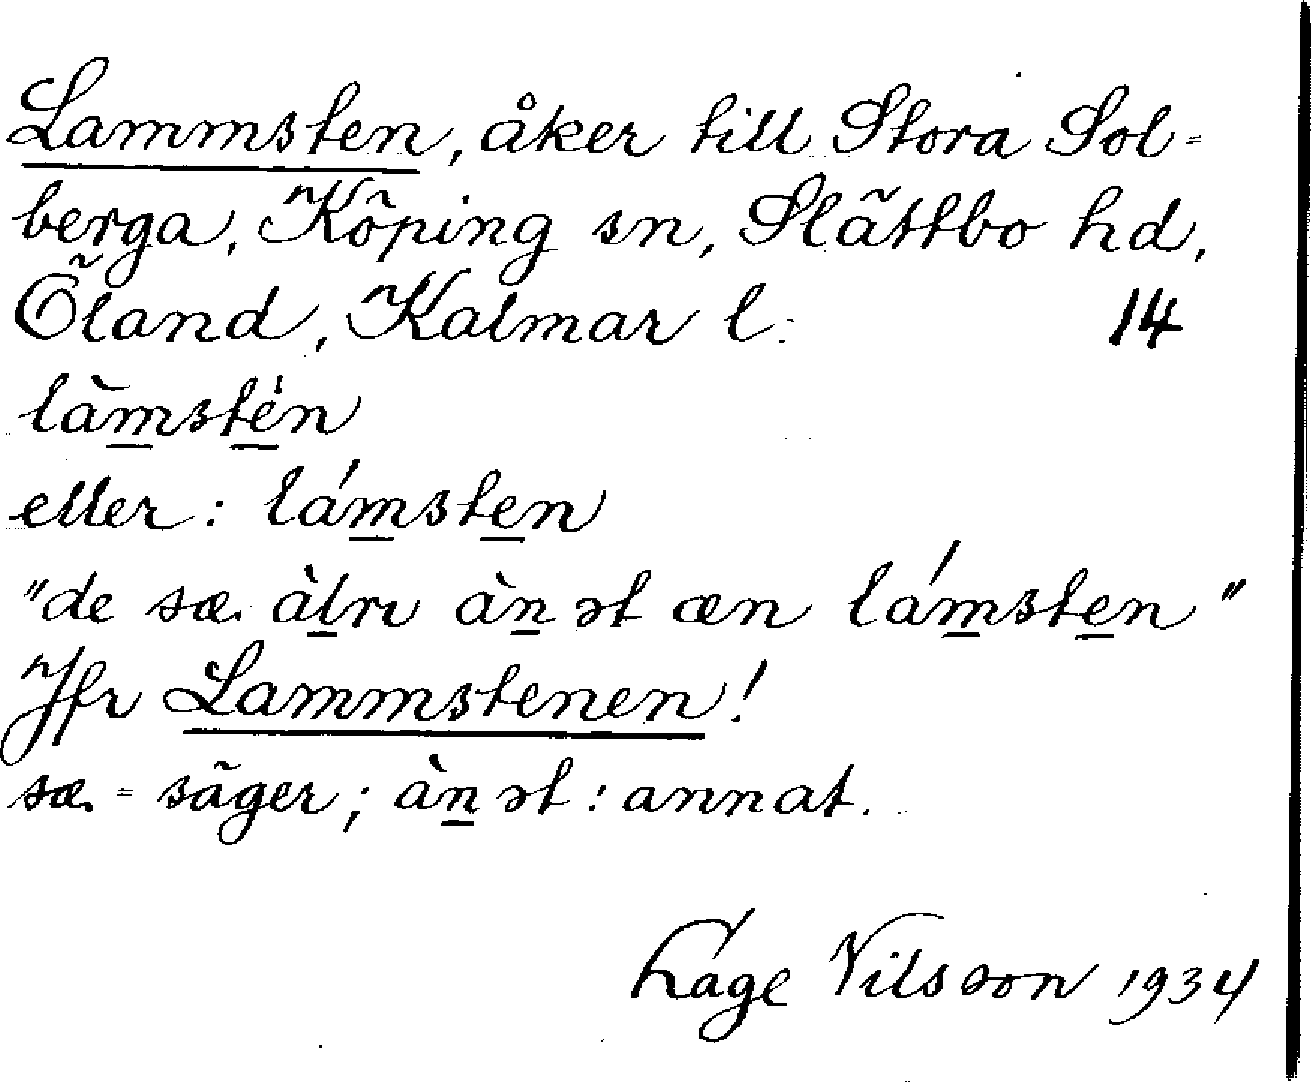 Lammsten, åker till Stora Sol-
berga, Köping sn, Slättbo hd,
Öland, Kalmar l. 14
làmstén
eller: lámsten
"de sæ. àlri ànət æn lámsten"
Jfr Lammstenen!
sæ. = säger; ànət: annat.
Låge Nilsson 1934